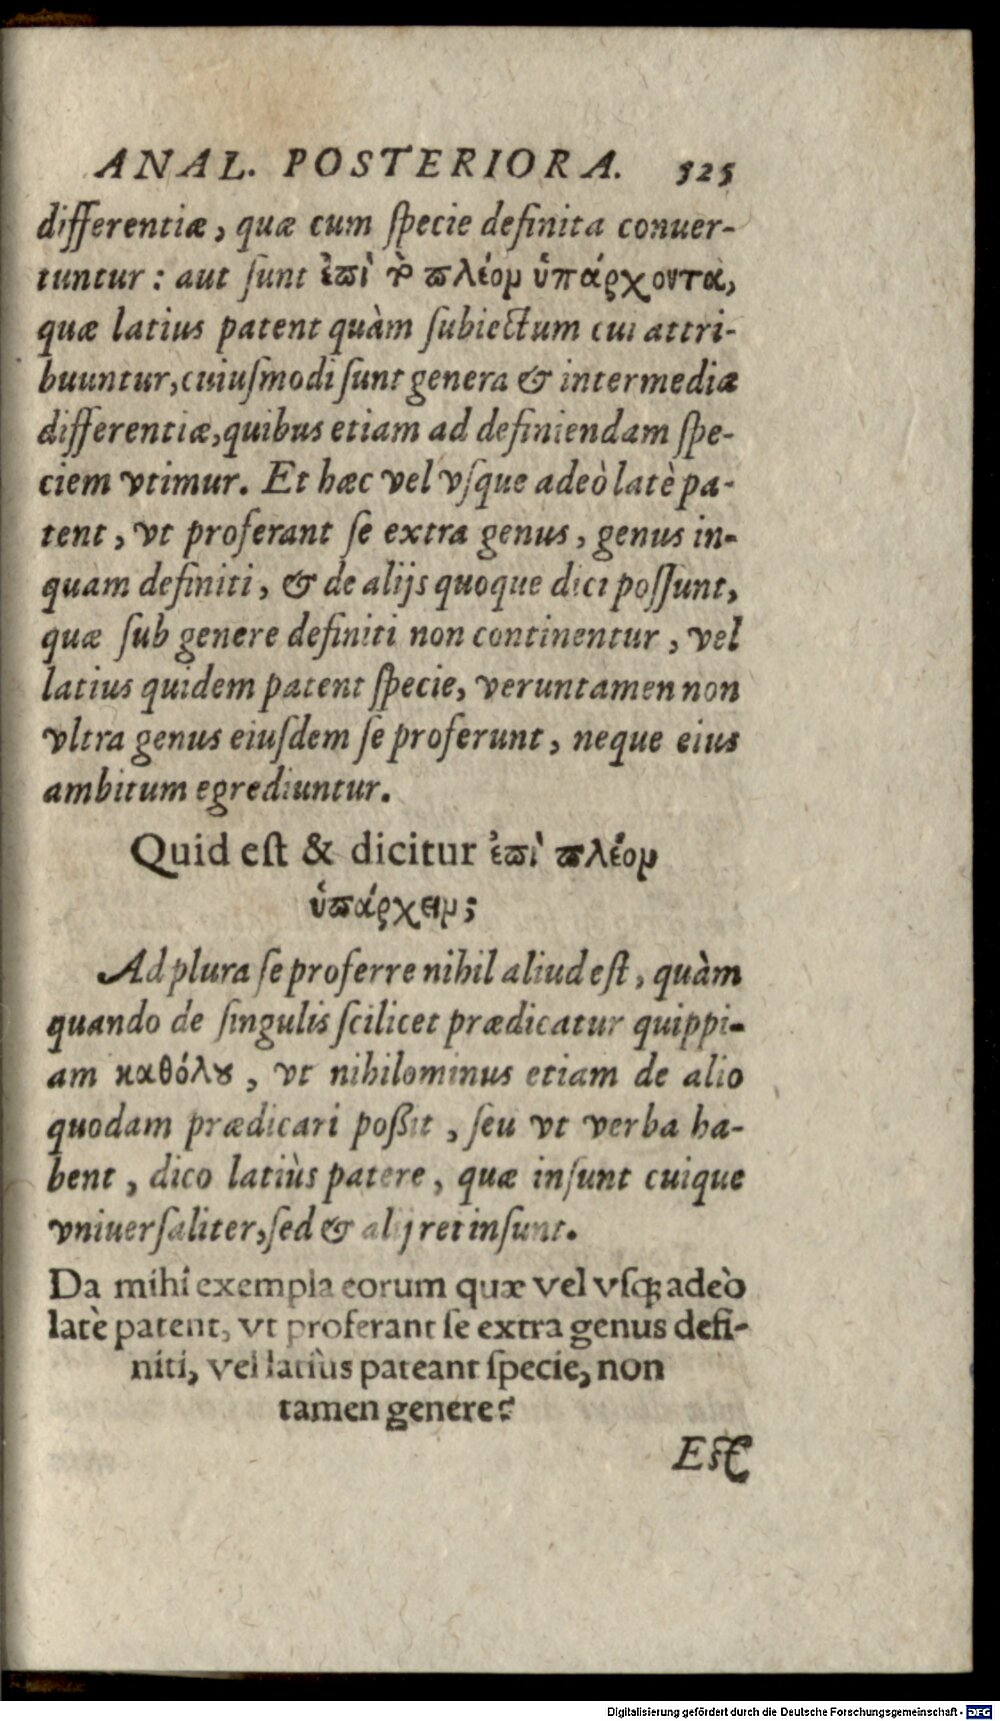 ANAL. POSTERIORA. 325
differentiæ, quæ cum ſpecie definita conuer-
tuntur: aut ſunt ἐϖὶ τὸ ϖλέον ὑπάρχοντα,
quæ latius patent quàm ſubiectum cui attri-
buuntur, cuiuſmodi ſunt genera & intermediæ
differentiæ, quibus etiam ad definiendam ſpe-
ciem vtimur. Et hæc vel vſque adeò latè pa-
tent, vt proferant ſe extra genus, genus in-
quam definiti, & de alijs quoque dici poſſunt,
quæ ſub genere definiti non continentur, vel
latius quidem patent ſpecie, veruntamen non
vltra genus eiuſdem ſe proferunt, neque eius
ambitum egrediuntur.
Quid eſt & dicitur ἐϖὶ ϖλέον
ὑϖάρχειν;
Ad plura ſe proferre nihil aliud eſt, quàm
quando de ſingulis ſcilicet prædicatur quippi-
am καθόλȣ, vt nihilominus etiam de alio
quodam prædicari poßit, ſeu vt verba ha-
bent, dico latiùs patere, quæ inſunt cuique
vniuerſaliter, ſed & alij rei inſunt.
Da mihi exempla eorum quæ vel vſq; adeò
latè patent, vt proferant ſe extra genus defi-
niti, vel latiùs pateant ſpecie, non
tamen genere?
Eſt
Digitalisierung gefördert durch die Deutsche Forschungsgemeinschaft - DFG